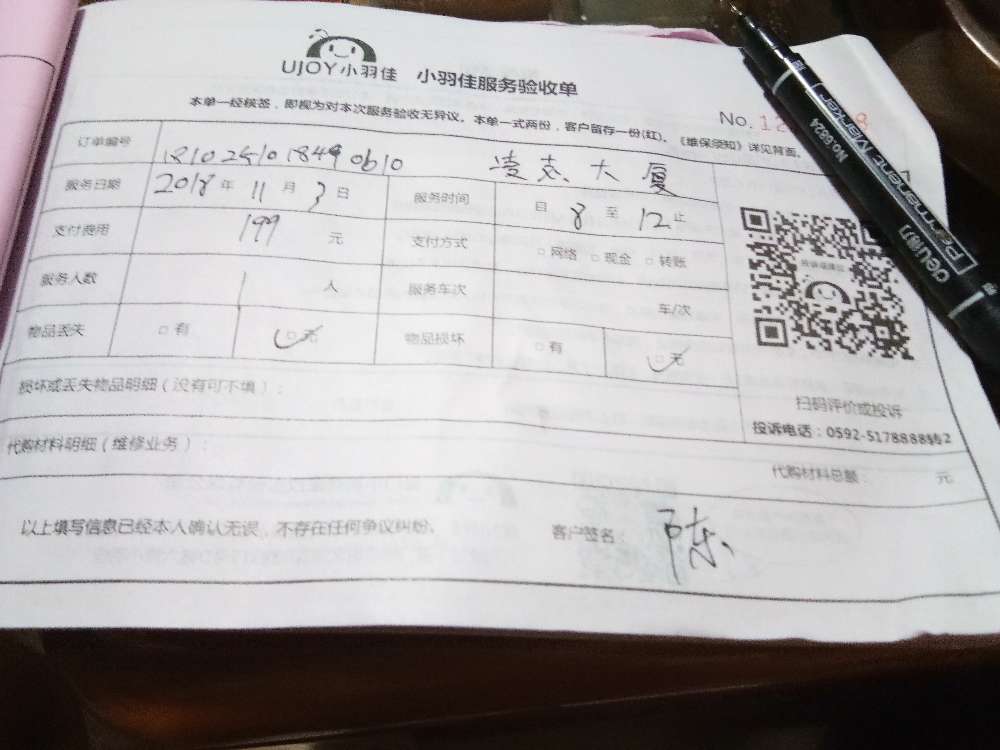 UJOY小羽佳 小羽佳服务验收单
本单一经核签，即视为对本次服务验收无异议。本单一式两份，客户留存一份(红)。《维保须知》详见背面。
No.12
订单编号 181025101849 0610 凌志大厦
服务日期 2018年11月3日 服务时间 自8至12止
支付费用 199元 支付方式 □网络 □现金 □转账
服务人数 1人 服务车次 车/次
物品丢失 □有 □无 物品损坏 □有 □无
损坏或丢失物品明细（没有可不填）：
扫码评价或投诉
投诉电话：0592-5178888转2
代购材料明细（维修业务）： 代购材料总额： 元
以上填写信息已经本人确认无误，不存在任何争议纠纷。 客户签名： 陈
deli得力
Permanent Marker
No.6824